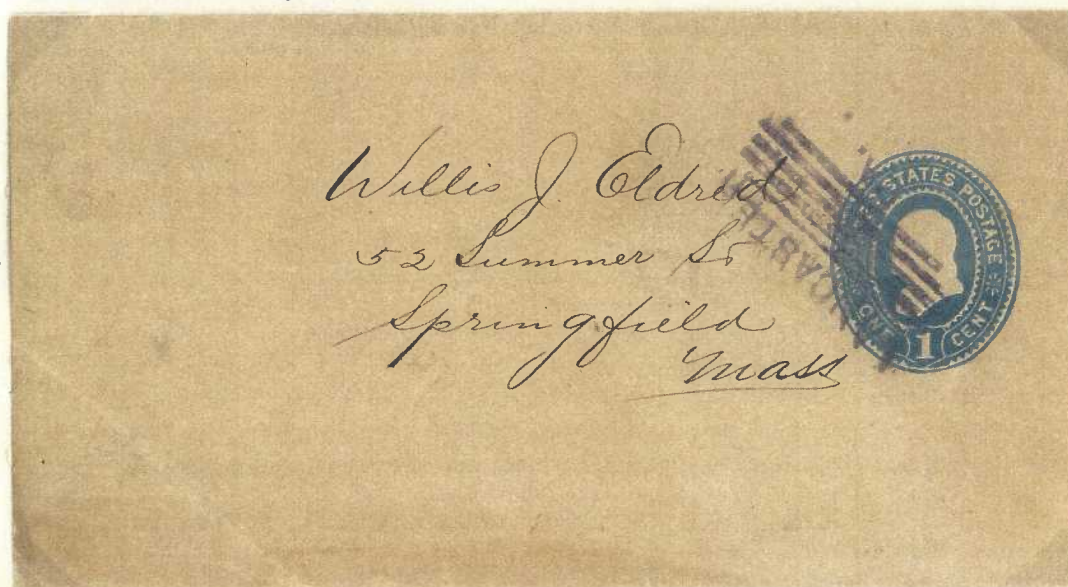 Willis J. Eldred
52 Summer St
Springfield
Mass
STATES POSTAGE
ONE 1 CENT